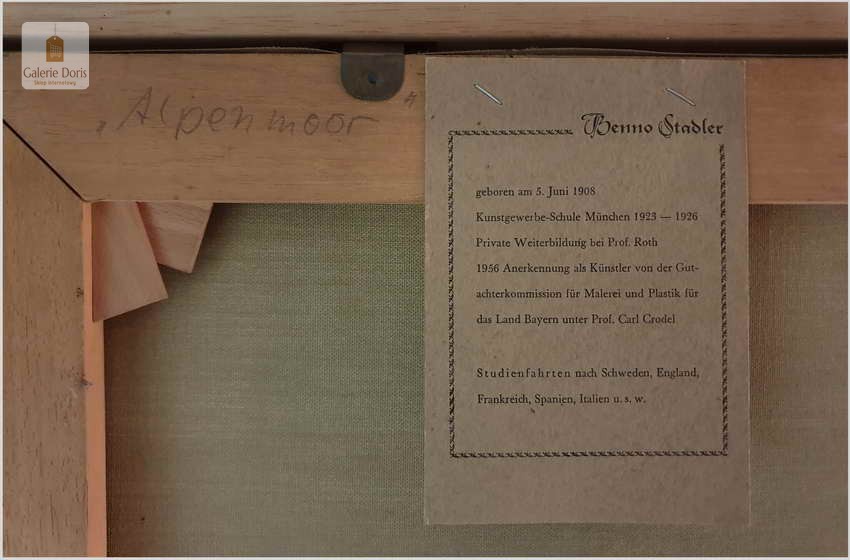 Galerie Doris
„Alpenmoor“
Benno Stadler
geboren am 5. Juni 1908
Kunstgewerbe-Schule München 1923 — 1926
Private Weiterbildung bei Prof. Roth
1956 Anerkennung als Künstler von der Gut-
achterkommission für Malerei und Plastik für
das Land Bayern unter Prof. Carl Crodel
Studienfahrten nach Schweden, England,
Frankreich, Spanien, Italien u. s. w.